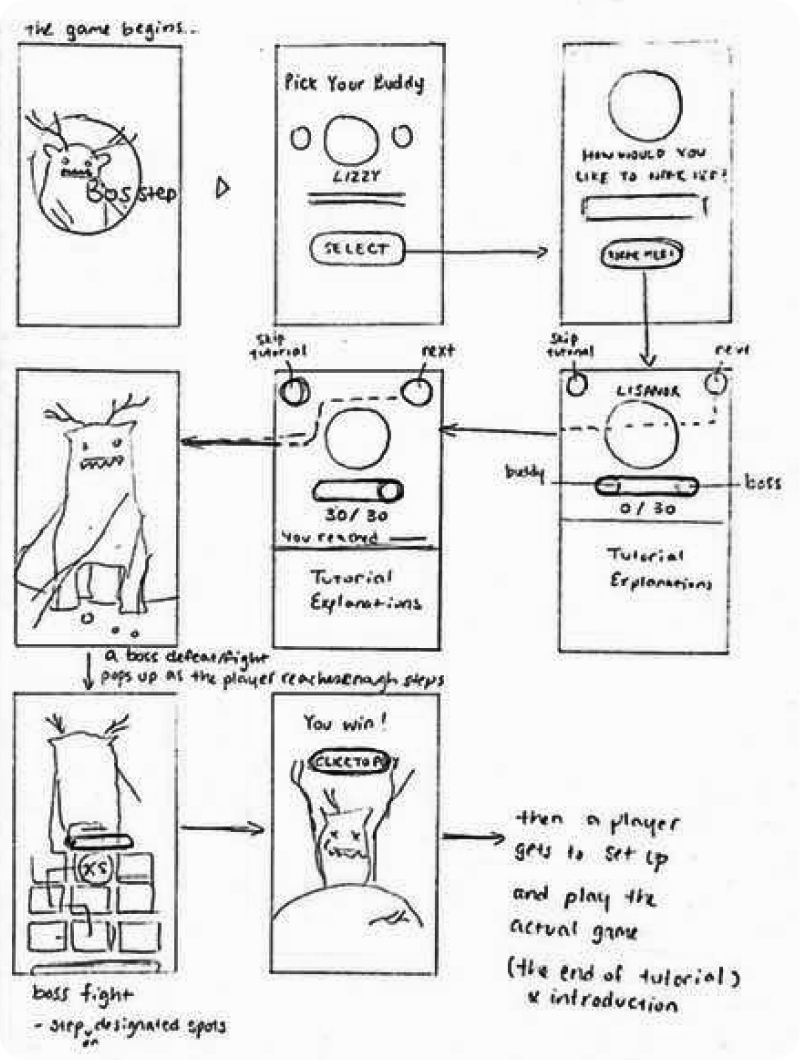 the game begins...
Bosstep
Pick Your Buddy
LIZZY
SELECT
HOW WOULD YOU
LIKE TO NAME HER?
NAME HER!
skip
tutorial
next
30/30
You reached
Tutorial
Explanations
skip
tutorial
next
LISANOR
buddy
boss
0/30
Tutorial
Explanations
a boss defeat/fight
pops up as the player reaches enough steps
x5
boss fight
- step on designated spots
You win!
CLICK TO PLAY
then a player
gets to set up
and play the
actual game
(the end of tutorial)
& introduction